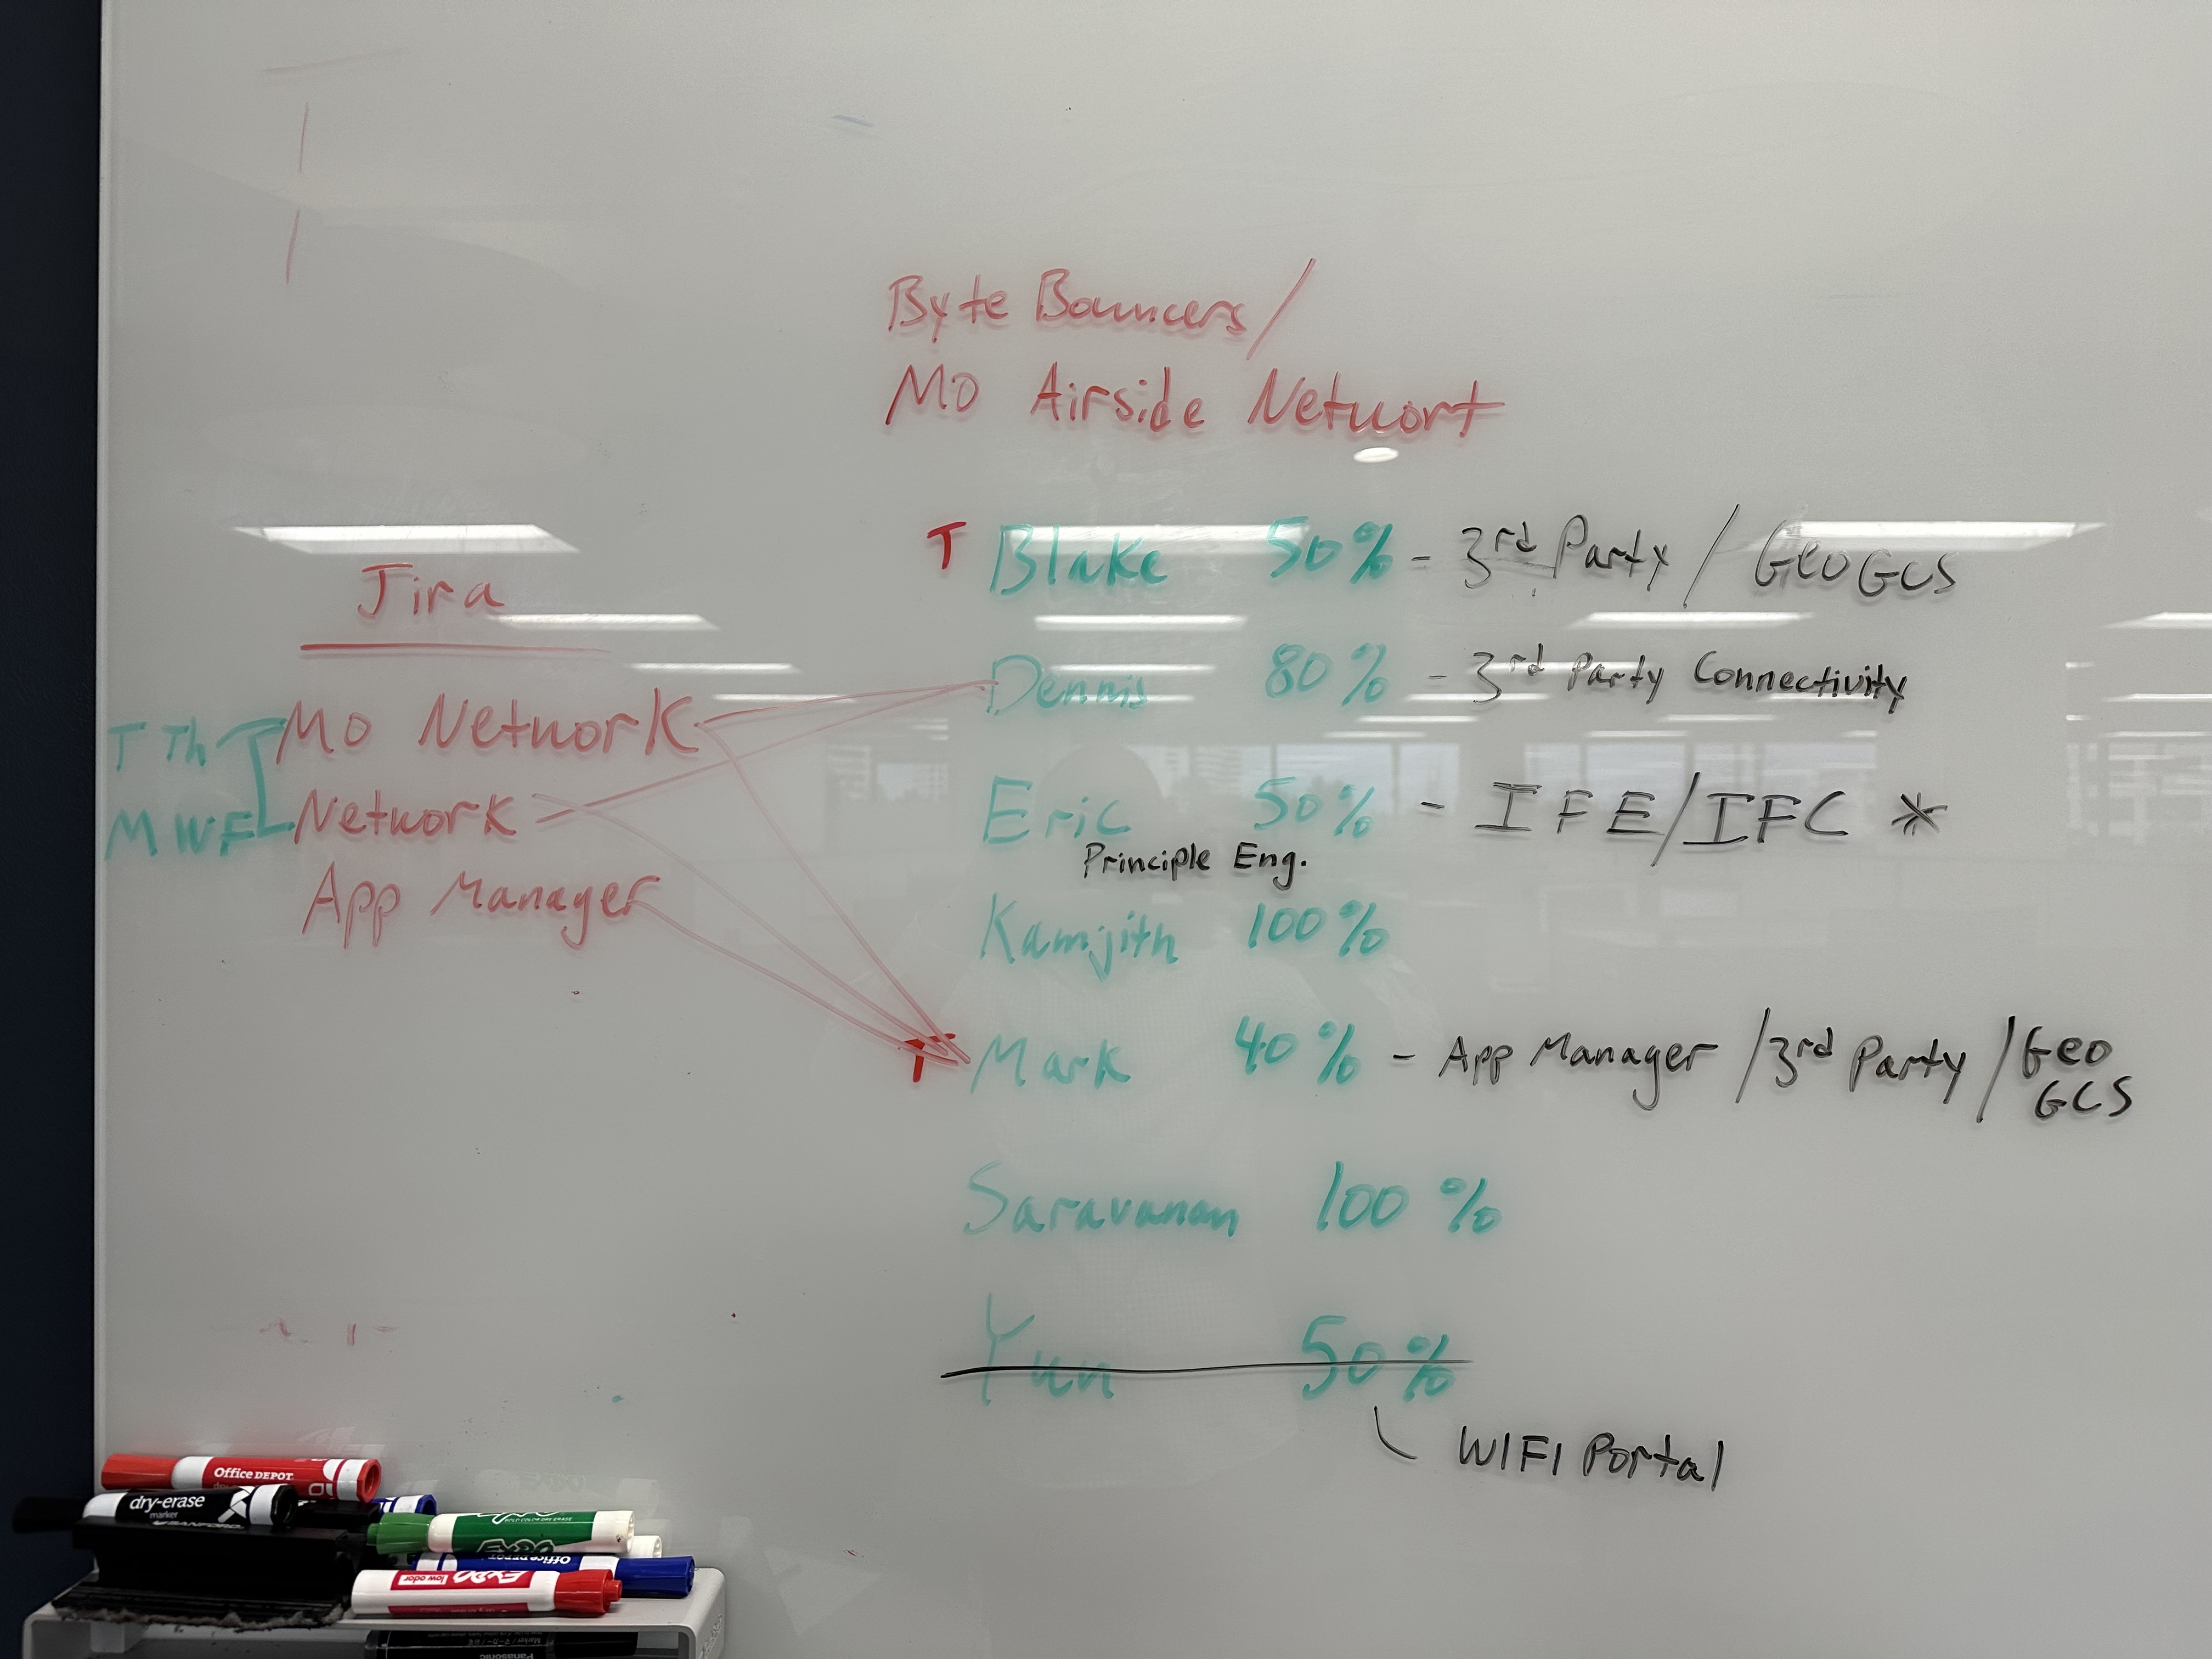 Byte Bouncers/
MO Airside Network
Jira
MO Network
T Th
Network
M W F
App Manager
T Blake 50% - 3rd Party / GEO GCS
Dennis 80% - 3rd Party Connectivity
Eric 50% - IFE/IFC *
Principle Eng.
Kamjith 100%
T Mark 40% - App Manager / 3rd Party / GEO
GCS
Saravanan 100%
Yun 50%
WIFI Portal
Office DEPOT
dry-erase
marker
SANFORD
Office DEPOT
EXPO
low odor
Panasonic